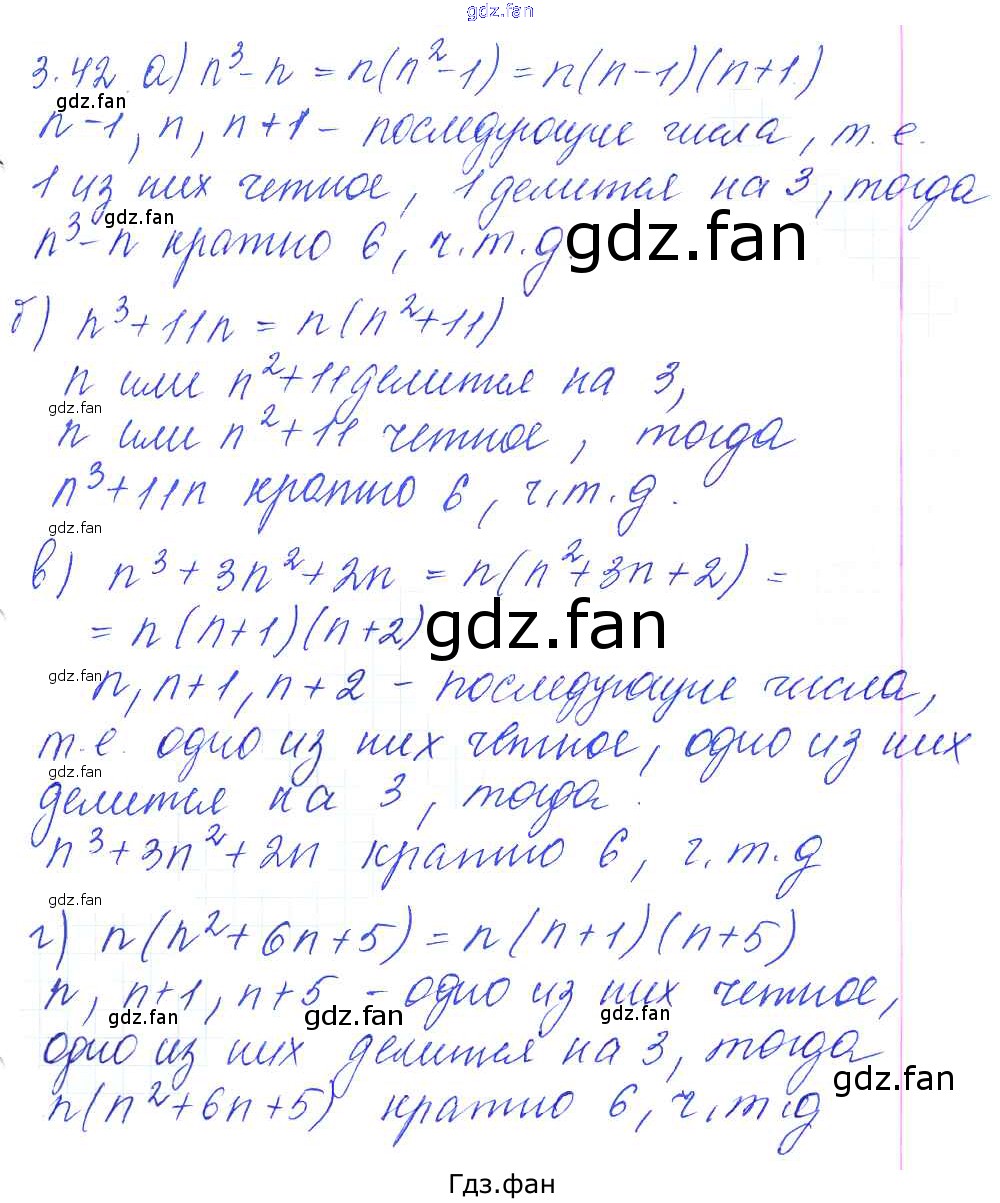 gdz.fan
3.42 а) n³ - n = n(n² - 1) = n(n-1)(n+1)
gdz.fan
n-1, n, n+1 - последующие числа, т.е.
1 из них четное, 1 делится на 3, тогда
gdz.fan
n³ - n кратно 6, ч.т.д.
gdz.fan
б) n³ + 11n = n(n² + 11)
n или n² + 11 делится на 3,
gdz.fan
n или n² + 11 четное, тогда
n³ + 11n кратно 6, ч.т.д.
gdz.fan
в) n³ + 3n² + 2n = n(n² + 3n + 2) =
= n(n+1)(n+2)
gdz.fan
n, n+1, n+2 - последующие числа,
gdz.fan
т.е. одно из них четное, одно из них
gdz.fan
делится на 3, тогда
n³ + 3n² + 2n кратно 6, ч.т.д
gdz.fan
г) n(n² + 6n + 5) = n(n+1)(n+5)
n, n+1, n+5 - одно из них четное,
gdz.fan gdz.fan gdz.fan
одно из них делится на 3, тогда
gdz.fan
n(n² + 6n + 5) кратно 6, ч.т.д
Гдз.фан